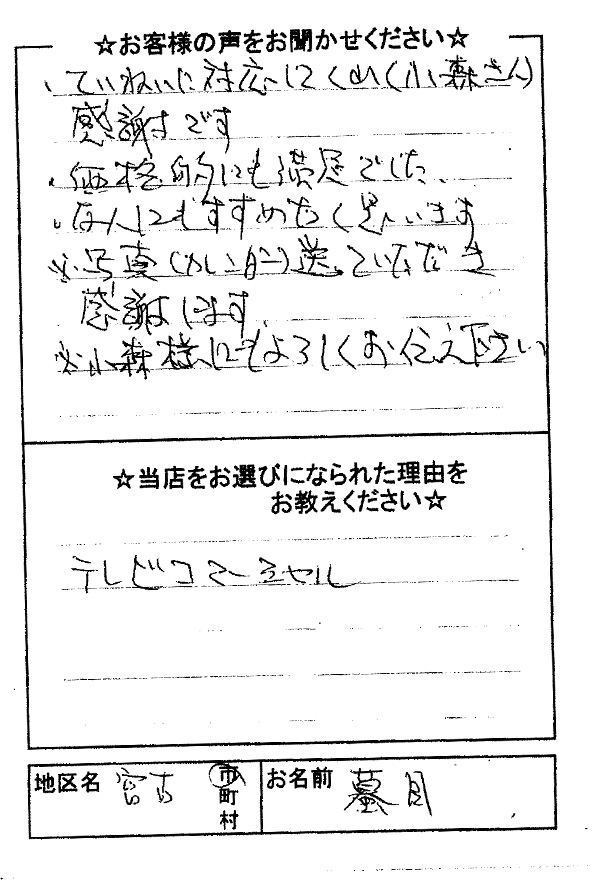 ☆お客様の声をお聞かせください☆
・ていねいに対応してくれ(小森さん)
感謝です
・価格的にも満足でした、
・友人にもすすめたく思います
※写真(カレンダー)送っていただき
感謝します
※小森様にもよろしくお伝え下さい
☆当店をお選びになられた理由を
お教えください☆
テレビコマーシャル
地区名 宮古 市 お名前 墓目
町
村